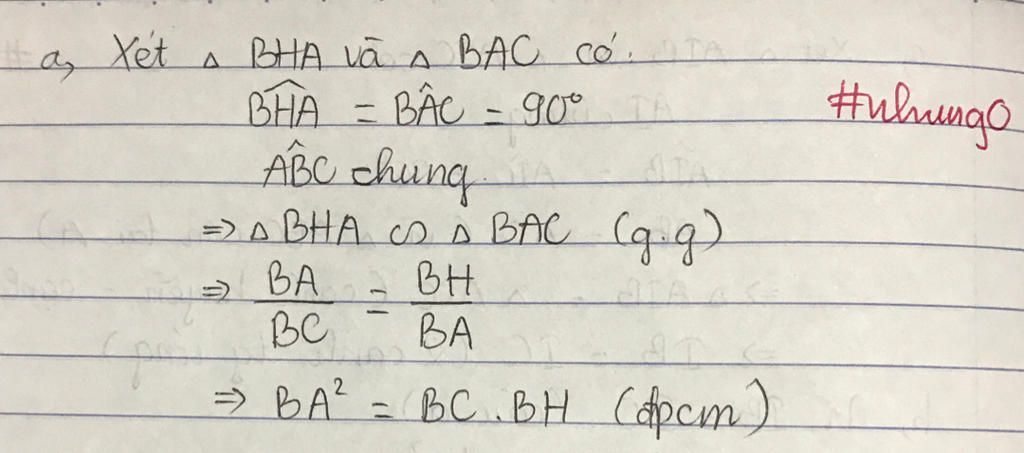 a, Xét △ BHA và △ BAC có:
$\widehat{BHA}$ = BÂC = 90° #nhung0
AB̂C chung.
⇒ △ BHA ∽ △ BAC (g.g)
⇒ BA/BC = BH/BA
⇒ BA² = BC.BH (đpcm)